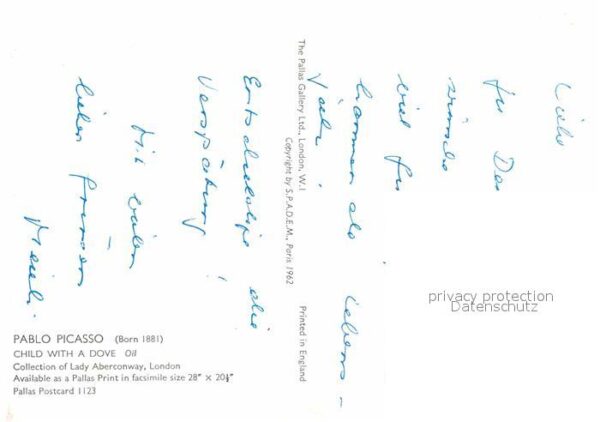 Liebe
für Das
wünsche
viel für
kommen als Lebens-
Entschuldige die
Verspätung!
Mit lieben
lieben Grüssen
The Pallas Gallery Ltd., London, W.1
Copyright by S.P.A.D.E.M., Paris 1962
Printed in England
PABLO PICASSO (Born 1881)
CHILD WITH A DOVE Oil
Collection of Lady Aberconway, London
Available as a Pallas Print in facsimile size 28" × 20½"
Pallas Postcard 1123
privacy protection
Datenschutz